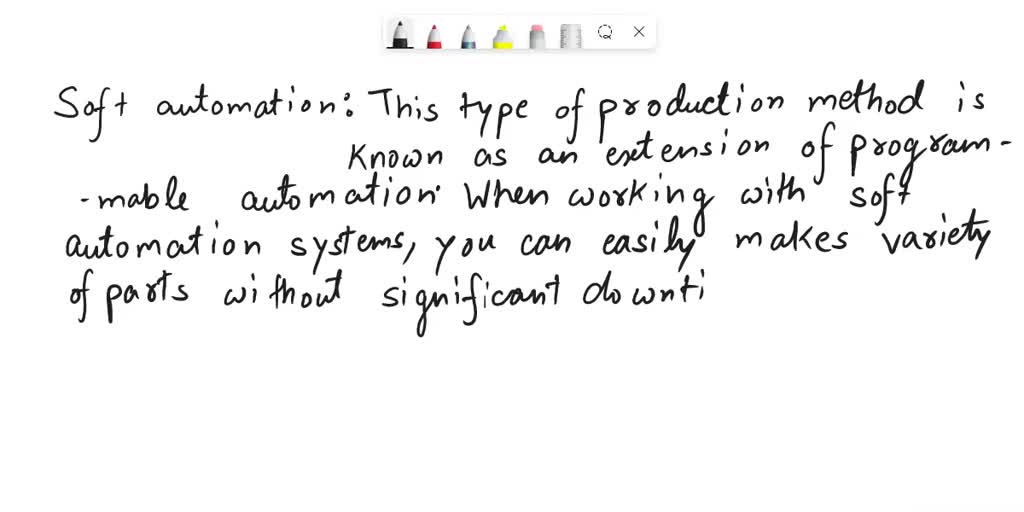 Soft automation: This type of production method is
known as an extension of program-
-mable automation. When working with soft
automation systems, you can easily makes variety
of parts without significant downti